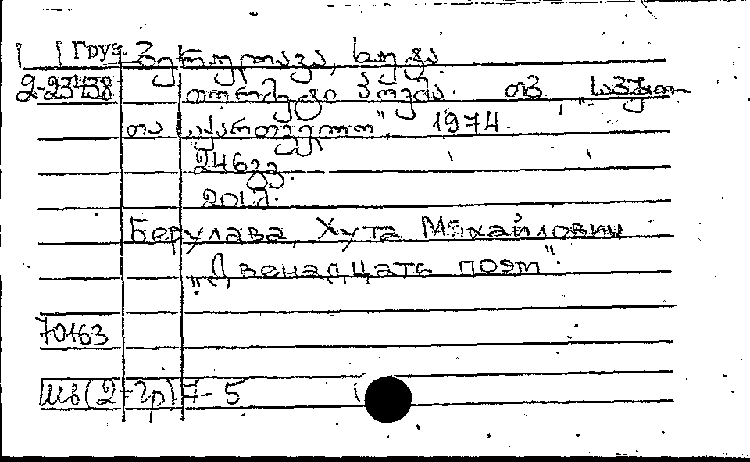 Груз. ბერულავა, ხუტა
2-23438 თორმეტი პოემა. თბ., „საბჭო-
თა საქართველო", 1974
246 გვ.
Берулава, Хута Михайлович
„Двенадцать поэм".
70163
Шв(2=Гр)7-5